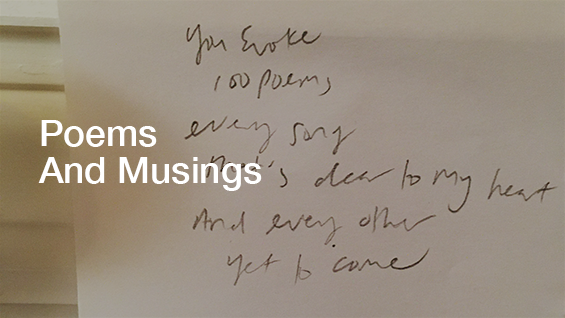 You Evoke
100 poems
every song
that's dear to my heart
And every other
yet to come
Poems
And Musings